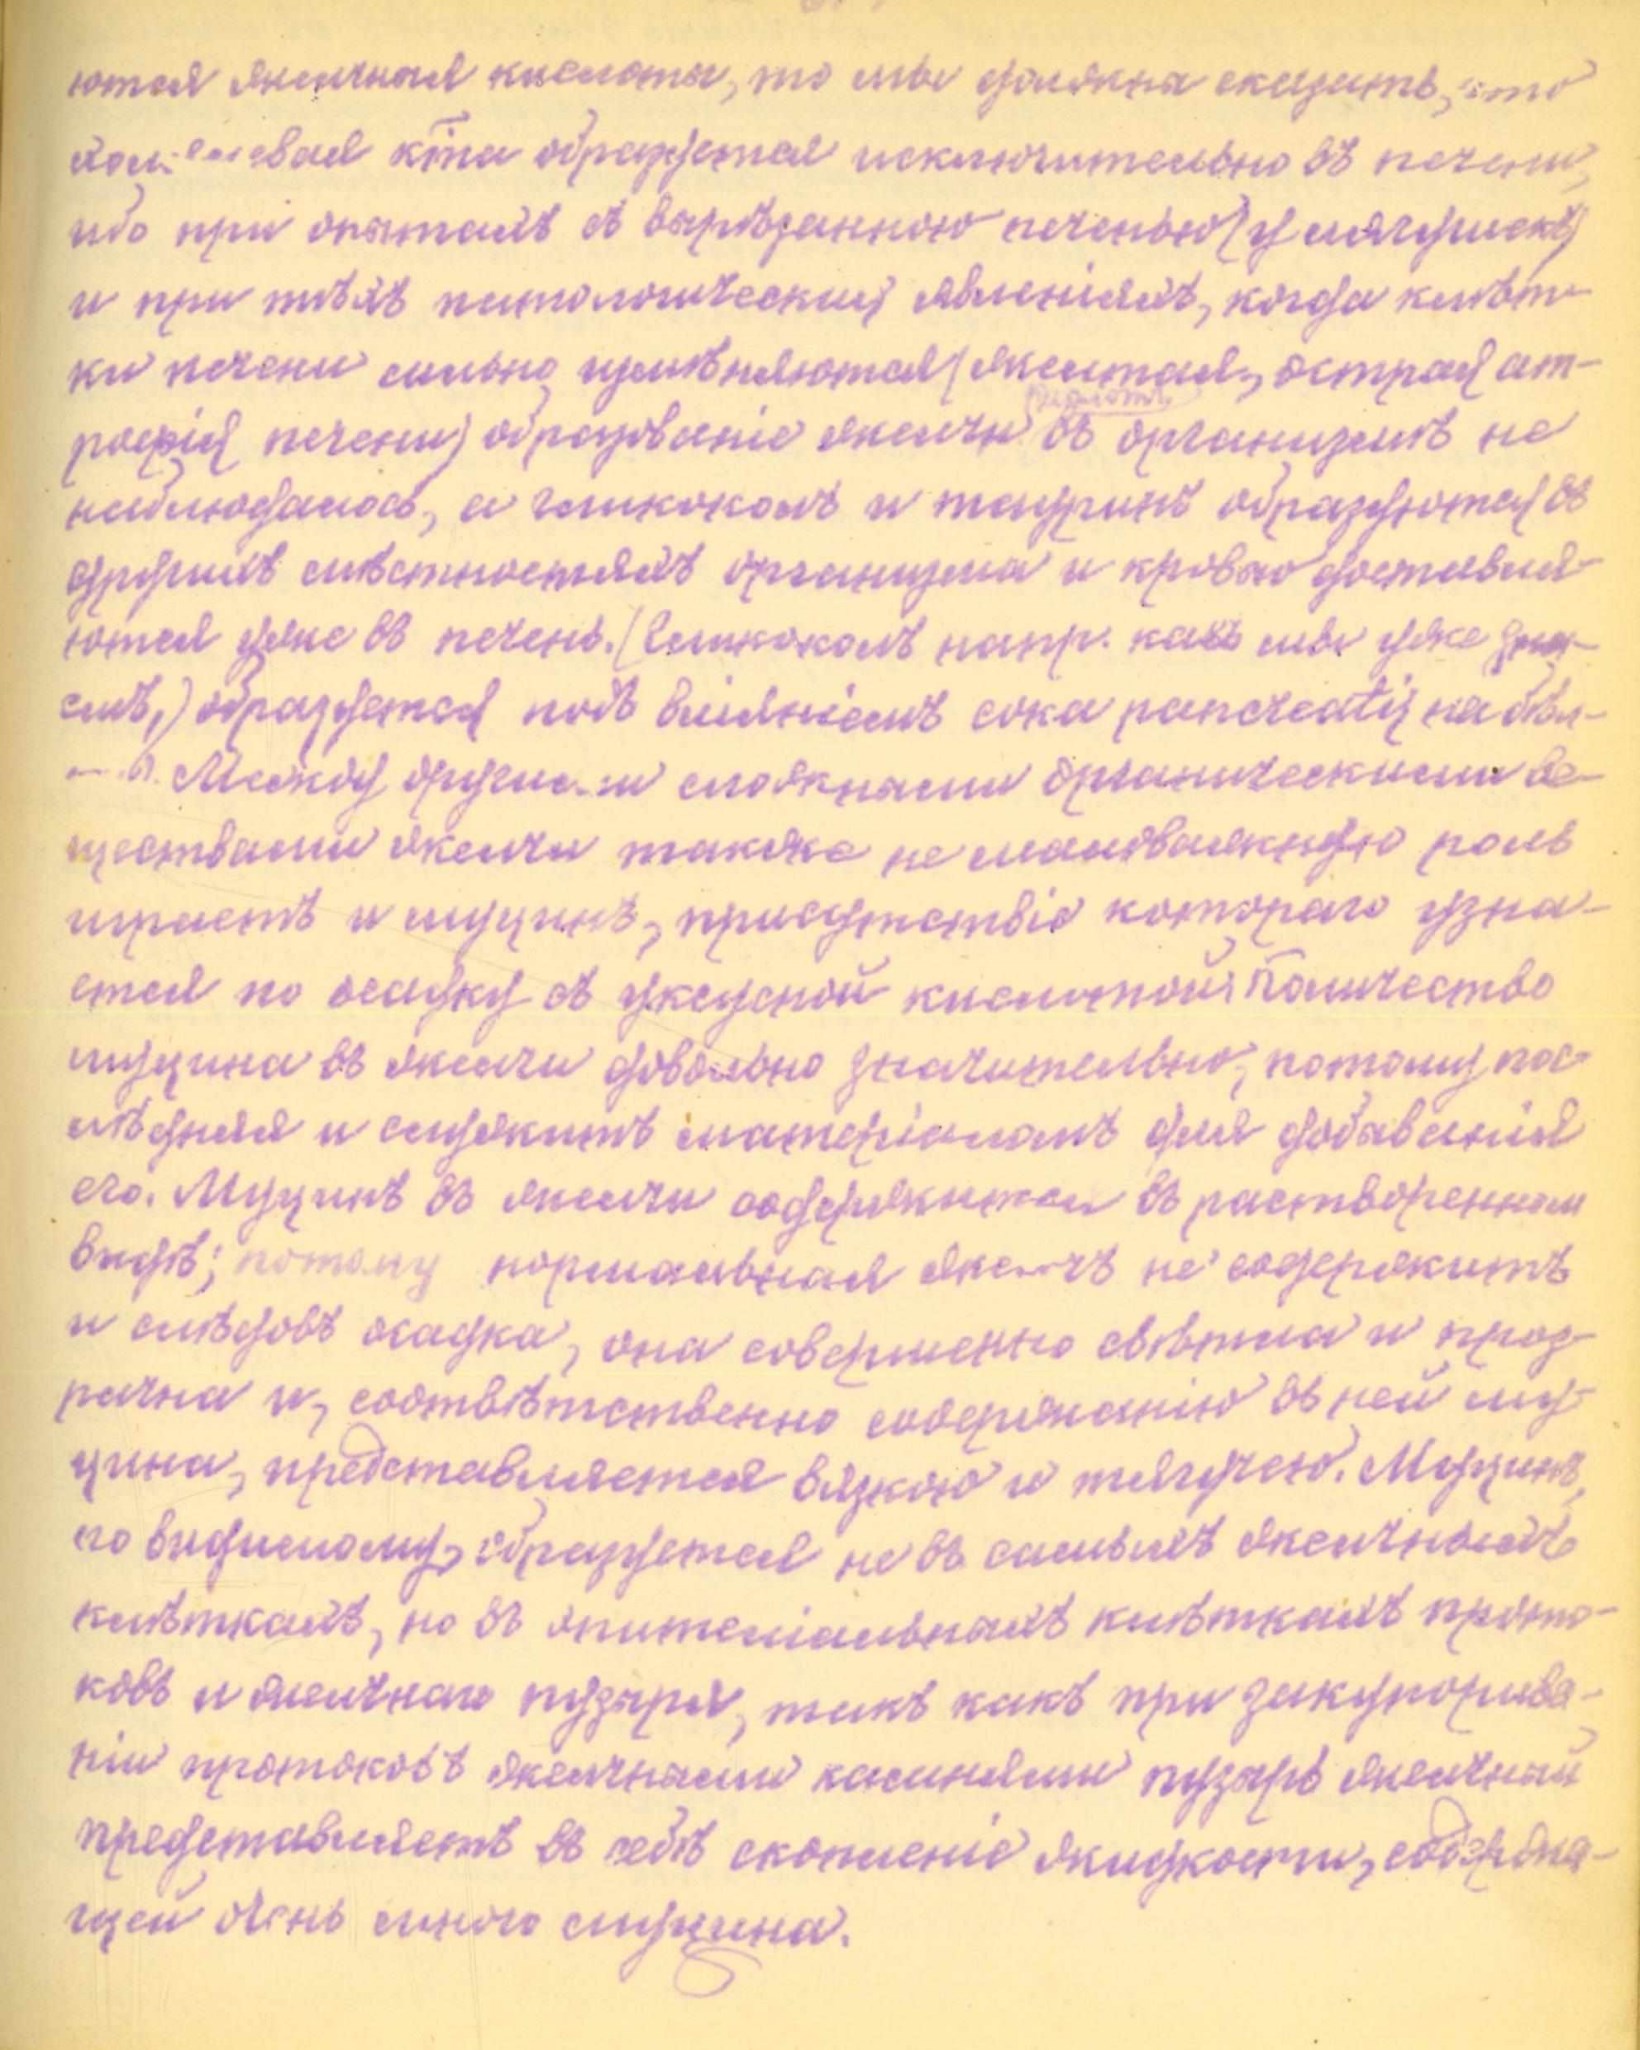 ются желчная кислоты, то мы должны сказать, что
холалевая к̅та образуется исключительно въ печени,
ибо при опытахъ съ вырѣзанною печенью (у лягушекъ)
и при тѣхъ патологический явленіяхъ, когда клѣт-
ки печени сильно измѣняются (желтая, острая ат-
рофія печени) образованіе желчи въ организмѣ не
наблюдалось, а гликоколъ и тауринъ образуются въ
другихъ мѣстностяхъ организма и кровью доставля-
ются уже въ печень. (Гликоколъ напр. какъ мы уже зна-
емъ,) образуется подъ вліяніемъ сока pancreatis на бѣл-
Между другими сложными органическими ве-
ществами желчи также не маловажную роль
играетъ и муцинъ, присутствіе котораго узна-
ется по осадку съ уксусной кислотой. Количество
муцина въ желчи довольно значительно, потому пос-
лѣдняя и служитъ матеріаломъ для добыванія
его. Муцинъ въ желчи содержится въ растворенном
видѣ; потому нормальная желчь не содержитъ
и слѣдовъ осадка, она совершенно свѣтла и проз-
рачна и, соотвѣтственно содержанію въ ней му-
цина, представляется вязкою и тягучею. Муцинъ,
по видимому, образуется не въ самыхъ желчныхъ
клѣткахъ, но въ эпителіальныхъ клѣткахъ прото-
ковъ и желчнаго пузыря, такъ какъ при закупорива-
ніи протоковъ желчными камнями пузырь желчный
представляетъ въ себѣ скопленіе жидкости, содержа-
щей очень много муцина.